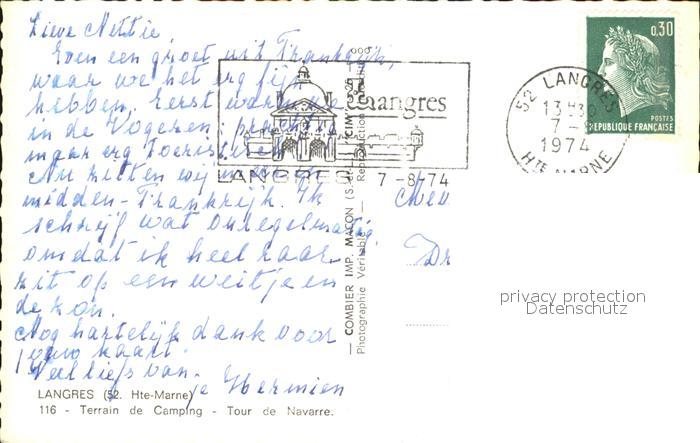 Lieve Nettie
Even een groet uit Frankrijk,
waar we het erg fijn
hebben. Eerst waren we
in de Vogezen: prachtig
maar erg Toeristisch
Nu zitten wij in
midden-Frankrijk. Ik
schrijf wat onregelmatig,
omdat ik heel raar
zit op een weitje en
de zon.
Nog hartelijk dank voor
jouw kaart.
Veel liefs van.
je Hermien
LANGRES (52. Hte-Marne)
116 - Terrain de Camping - Tour de Navarre.
Langres
LANGRES
7 -8 74
— COMBIER IMP. MACON (S.-
Photographie Véritable — Reproduction
Mev
Dr
0,30
POSTES
REPUBLIQUE FRANÇAISE
52 LANGRES
13H30
7 -
1974
HTE MARNE
privacy protection
Datenschutz